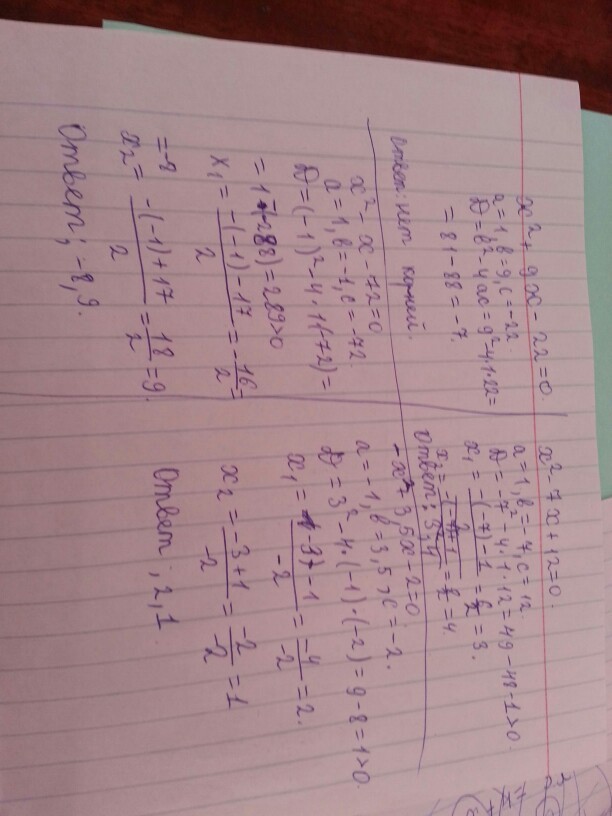 x² + 9x - 22 = 0.
a = 1, b = 9, c = -22.
D = b² 4ac = 9² - 4·1·22 =
= 81 - 88 = -7.
Ответ: нет корней.
x² - x - 72 = 0
a = 1, b = -1, c = -72.
D = (-1)² - 4·1·(-72) =
= 1 - (-288) = 289 > 0
x₁ = -(-1) - 17 / 2 = -16 / 2 =
= -8
x₂ = -(-1) + 17 / 2 = 18 / 2 = 9.
Ответ; -8, 9.
x² - 7x + 12 = 0.
a = 1, b = -7, c = 12.
D = -7² - 4·1·12 = 49 - 48 - 1 > 0.
x₁ = -(-7) - 1 / 2 = 6 / 2 = 3.
= 4.
Ответ: 3, 4
-x² + 3,5x - 2 = 0
a = -1, b = 3,5, c = -2.
D = 3² - 4·(-1)·(-2) = 9 - 8 = 1 > 0.
x₁ = -3 - 1 / -2 = -4 / -2 = 2.
x₂ = -3 + 1 / -2 = -2 / -2 = 1
Ответ; 2, 1.